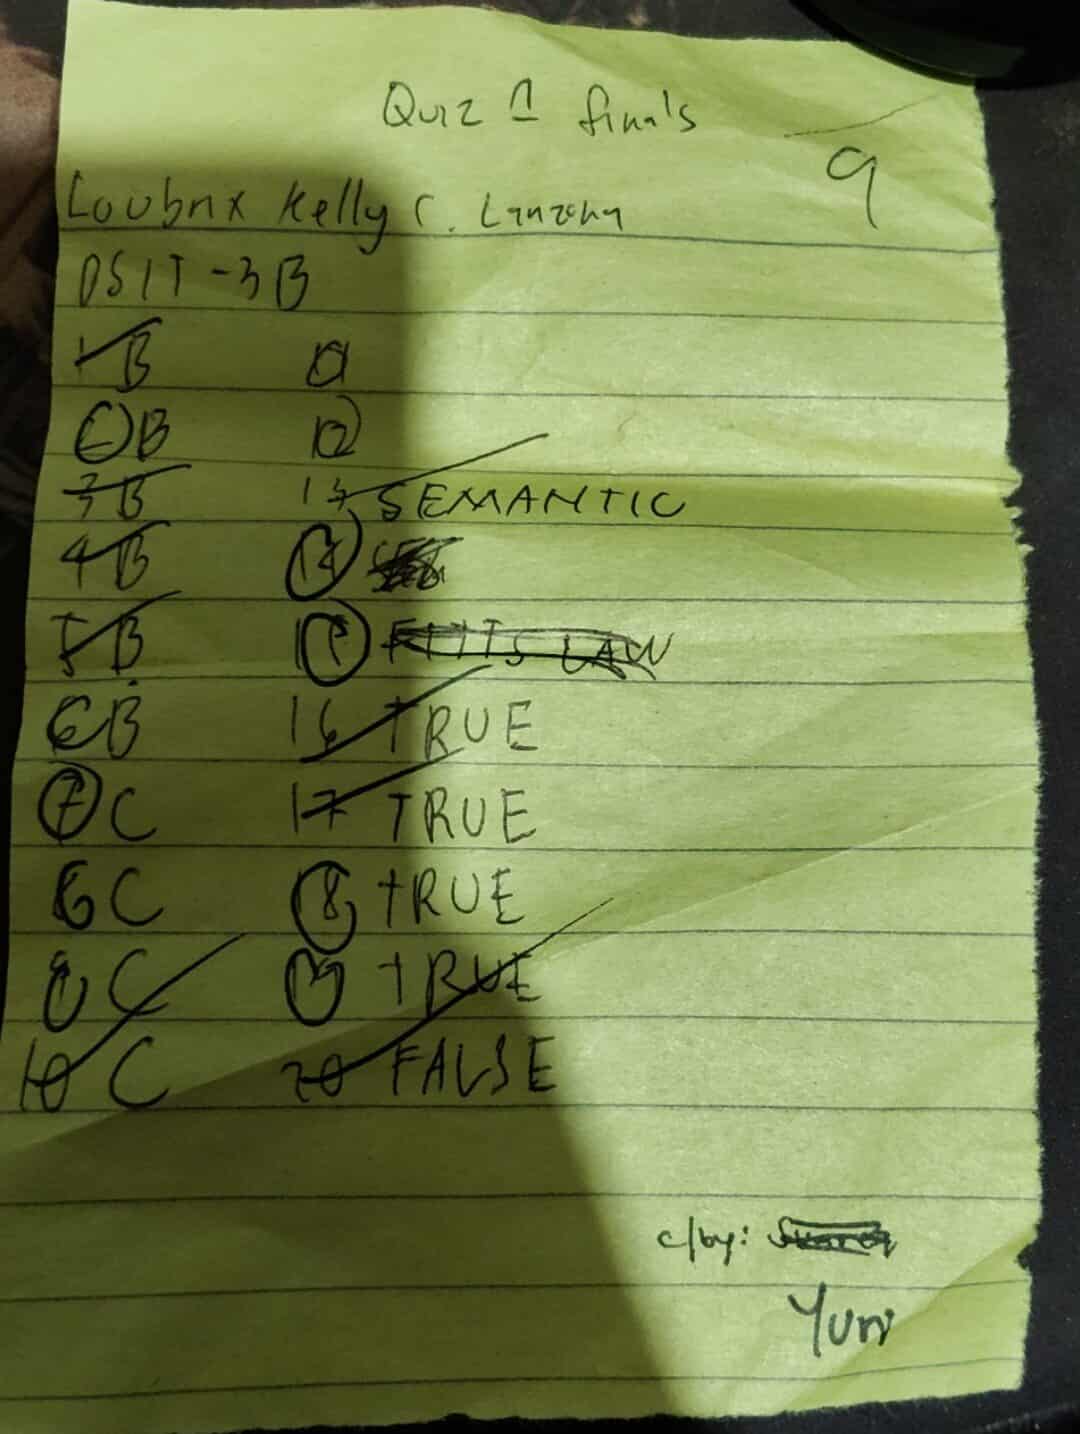 Quiz 1 finals
9
Loubrix Kelly C. Lanzona
BSIT-3B
1 B
2 B
3 B
4 B
5 B
6 B
7 C
8 C
9 C
10 C
11
12
13 SEMANTIC
14
15 FITTS LAW
16 TRUE
17 TRUE
18 TRUE
19 TRUE
20 FALSE
c/by:
Yuri